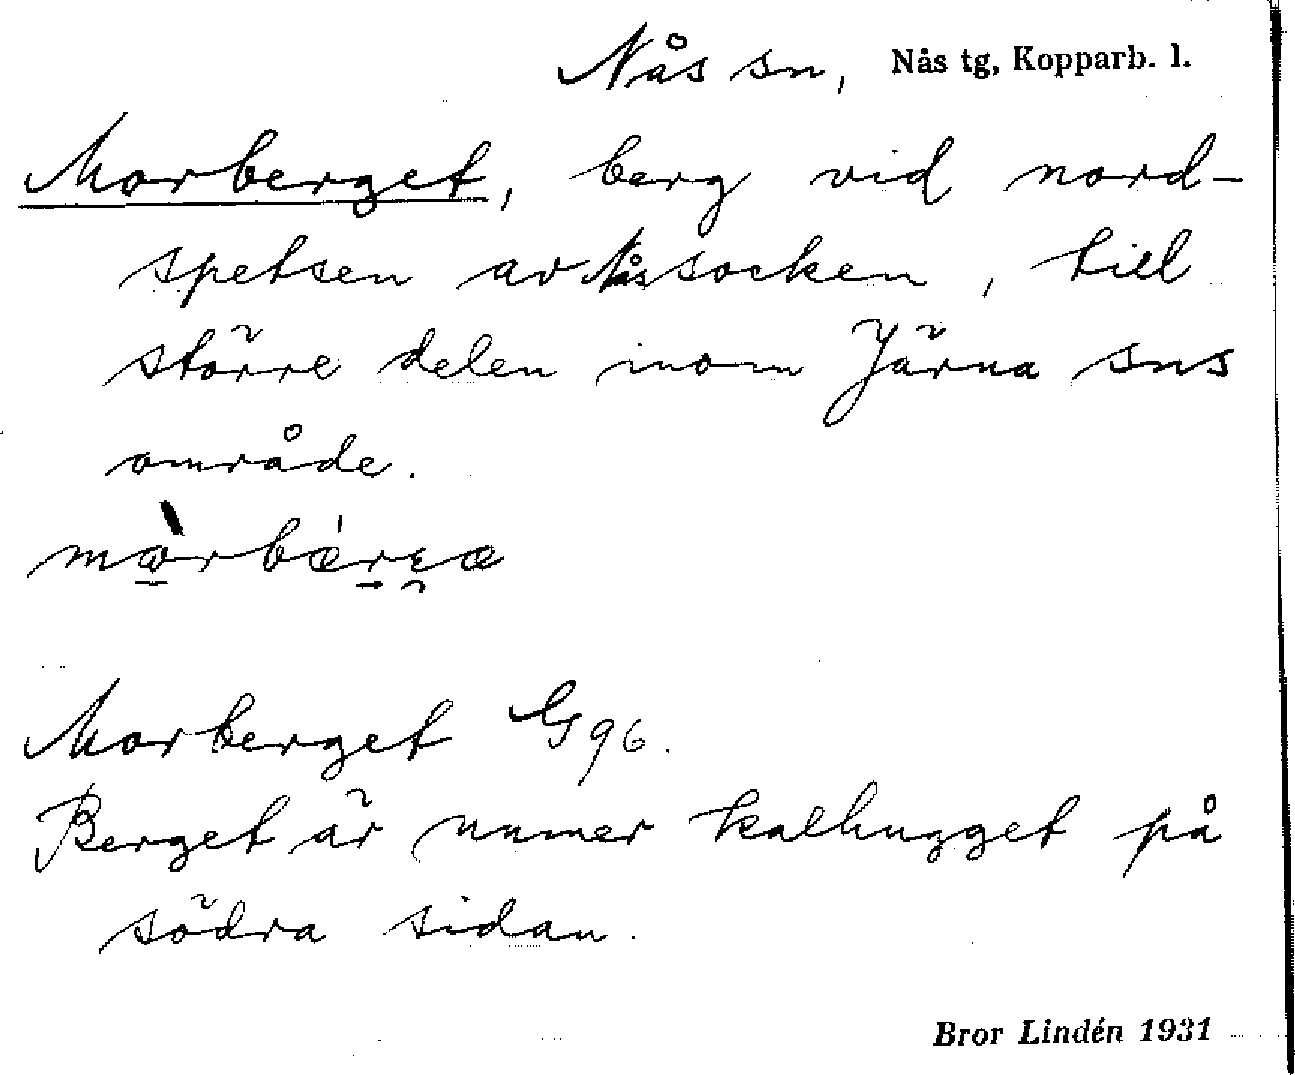 Nås sn, Nås tg, Kopparb. l.
Morberget, berg vid nord-
spetsen av Nås socken, till
större delen inom Järna sns
område.
Morberget G 96.
Berget är numer kalhugget på
södra sidan.
Bror Lindén 1931